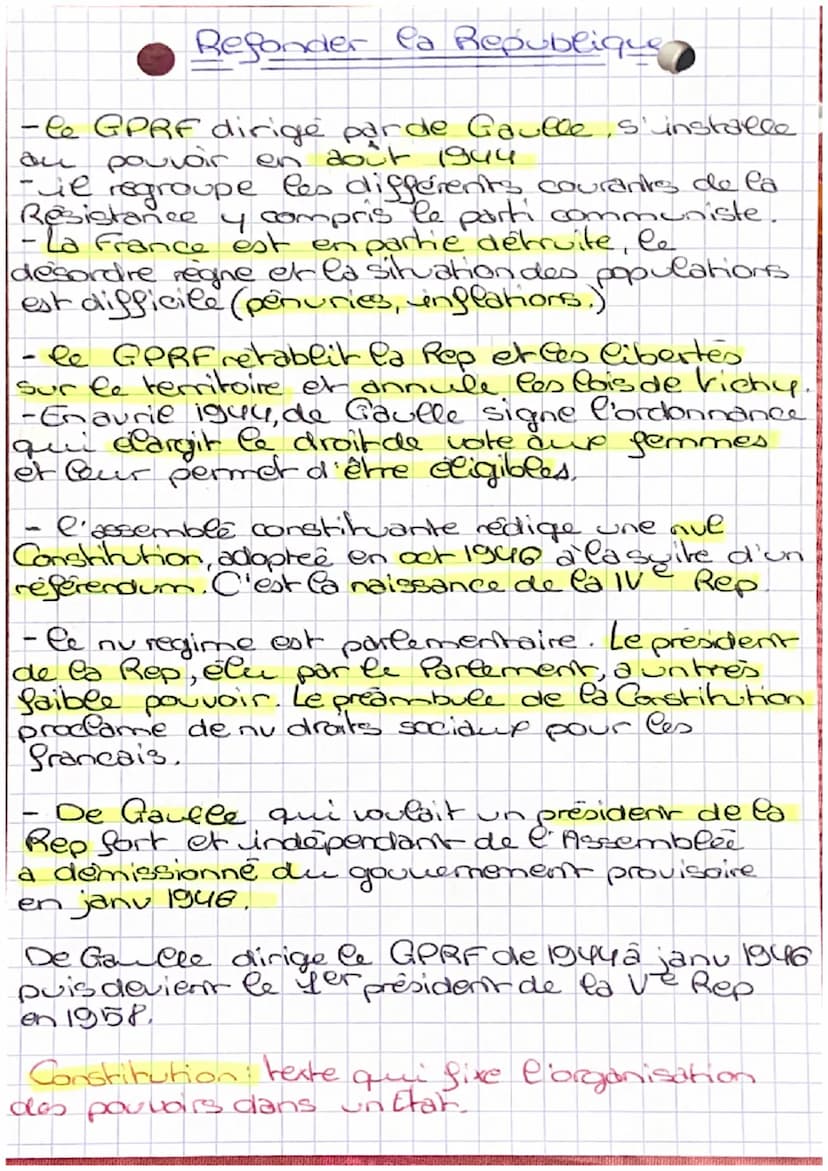 Refonder la République
- le GPRF dirigé par de Gaulle, s'installe
au pouvoir en août 1944
- il regroupe les différents courants de la
Résistance y compris le parti communiste.
- La France est en partie détruite, le
désordre règne et la situation des populations
est difficile (pénuries, inflations.)
- le GPRF rétablit la Rep et les libertés
sur le territoire et annule les lois de Vichy.
- En avril 1944, de Gaulle signe l'ordonnance
qui élargit le droit de vote aux femmes
et leur permet d'être éligibles.
- l'assemblé constituante rédige une nvl
Constitution, adoptée en oct 1946 à la suite d'un
référendum. C'est la naissance de la IVe Rep.
- le nv regime est parlementaire. Le président
de la Rep, élu par le Parlement, a un très
faible pouvoir. Le préambule de la Constitution
proclame de nv droits sociaux pour les
francais.
- De Gaulle qui voulait un président de la
Rep fort et indépendant de l'Assemblée
a démissionné du gouvernement provisoire
en janv 1946.
De Gaulle dirige le GPRF de 1944 à janv 1946
puis devient le 1er président de la Ve Rep
en 1958.
Constitution : texte qui fixe l'organisation
des pouvoirs dans un État.